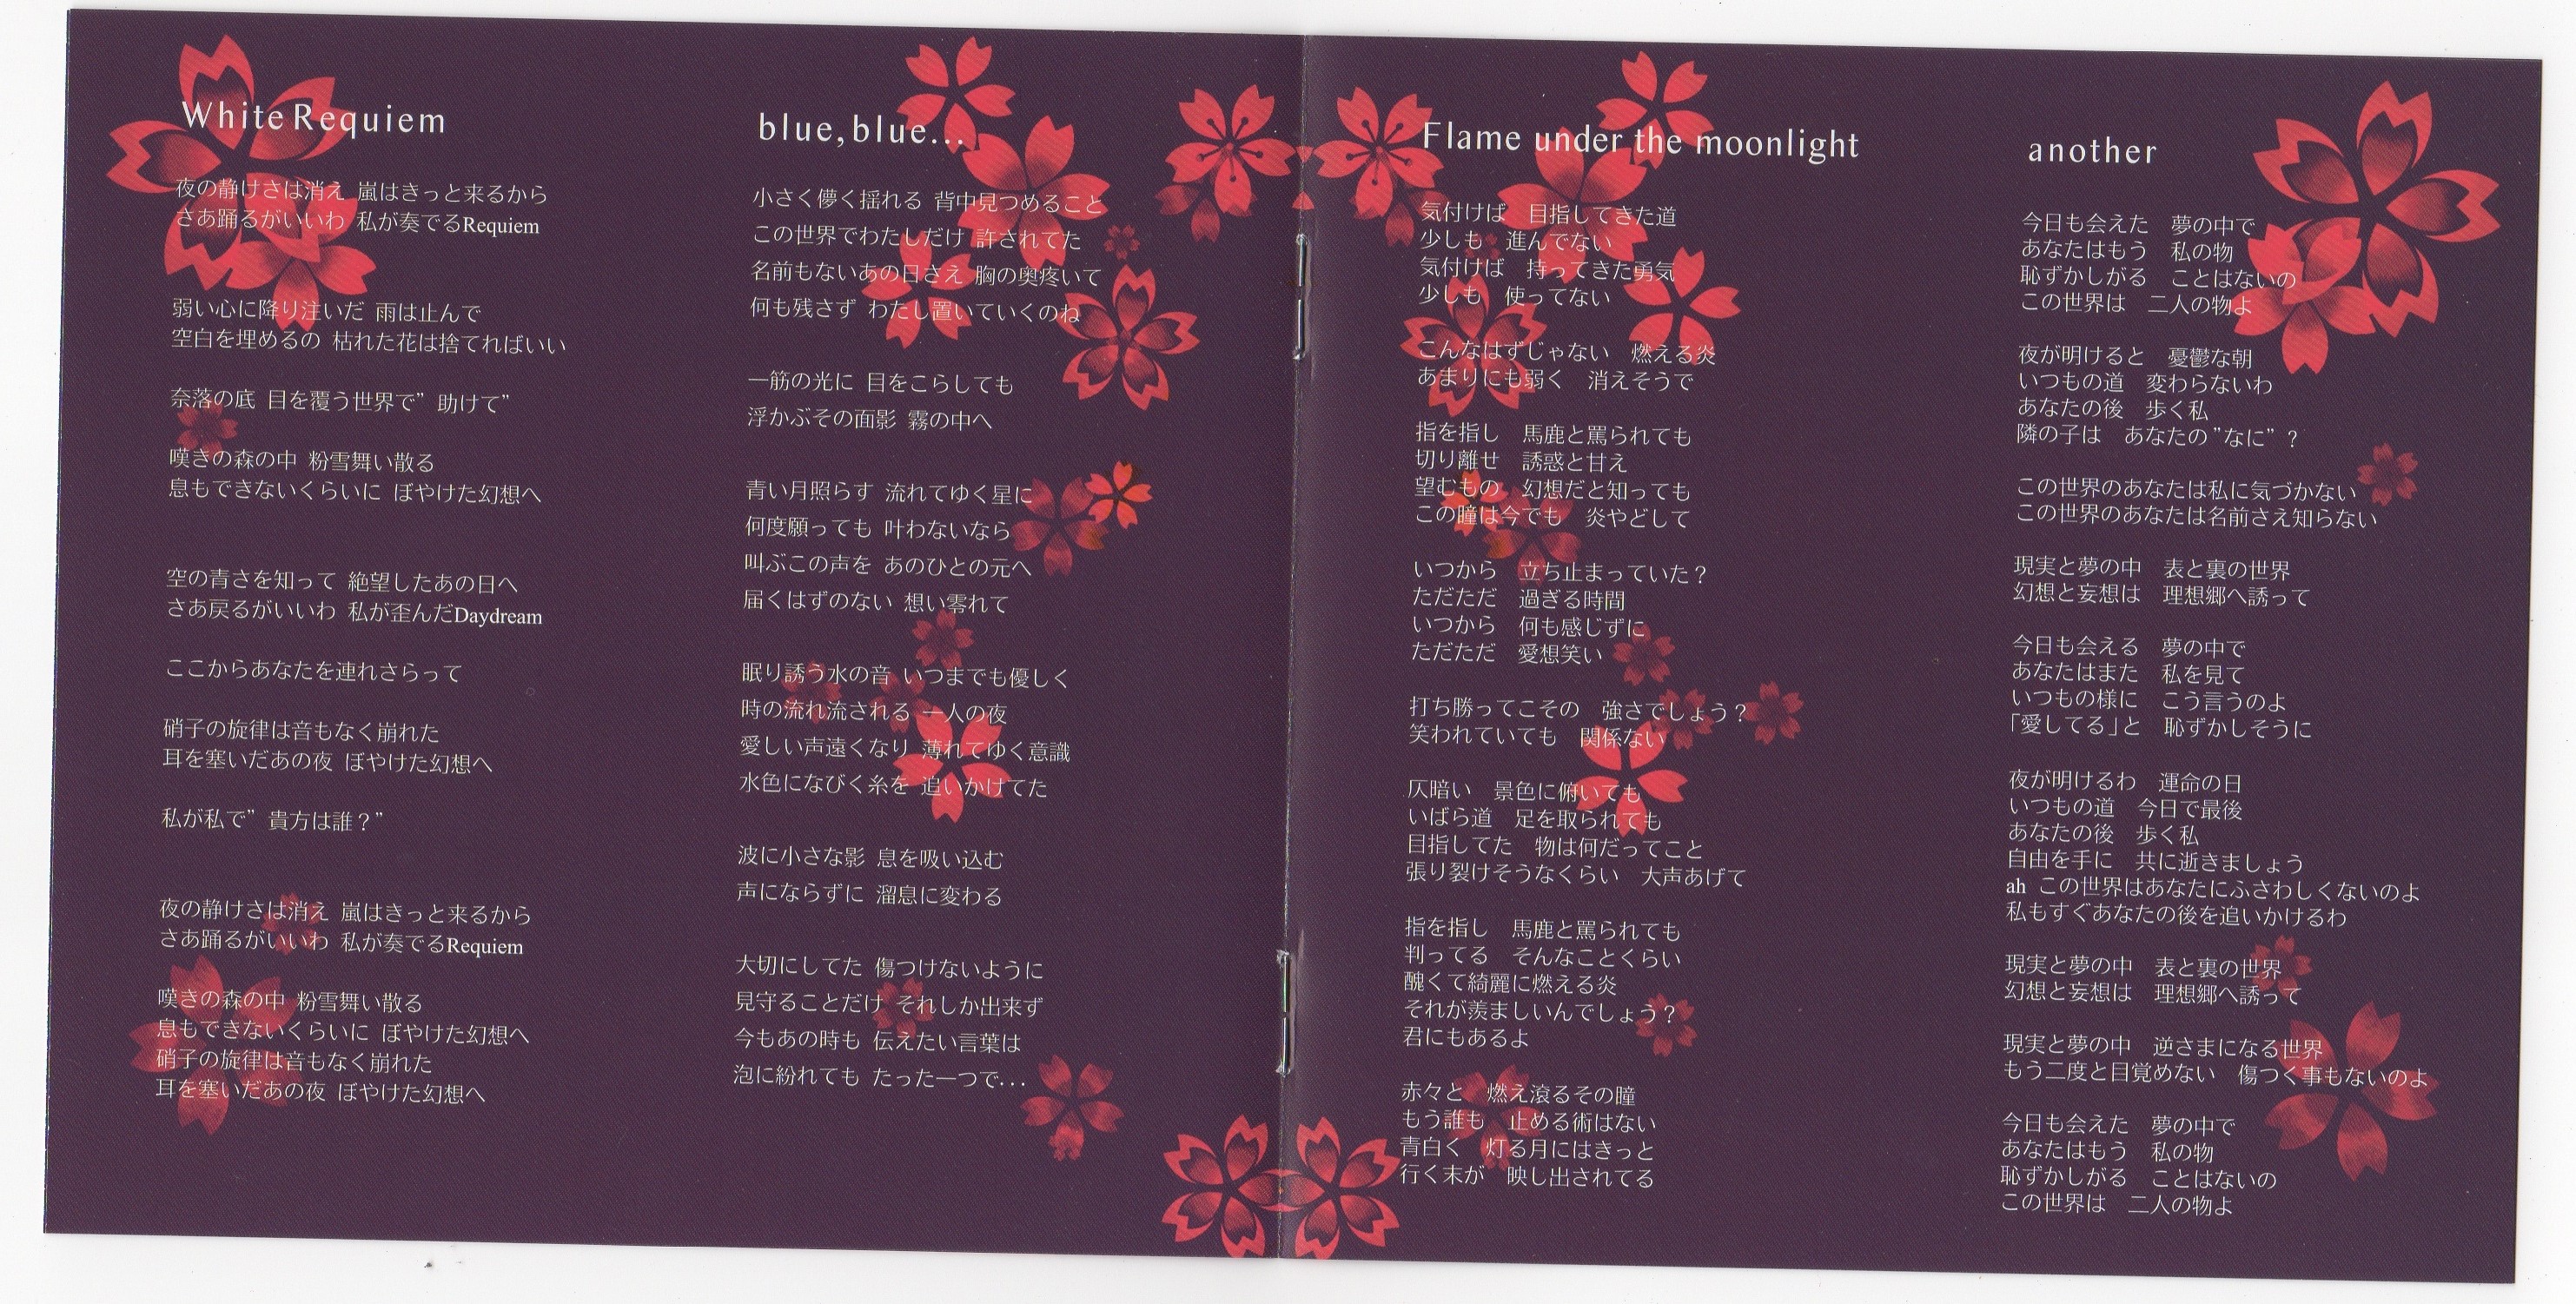 White Requiem
夜の静けさは消え 嵐はきっと来るから
さあ踊るがいいわ 私が奏でるRequiem
弱い心に降り注いだ 雨は止んで
空白を埋めるの 枯れた花は捨てればいい
奈落の底 目を覆う世界で”助けて”
嘆きの森の中 粉雪舞い散る
息もできないくらいに ぼやけた幻想へ
空の青さを知って 絶望したあの日へ
さあ戻るがいいわ 私が歪んだDaydream
ここからあなたを連れさらって
硝子の旋律は音もなく崩れた
耳を塞いだあの夜 ぼやけた幻想へ
私が私で”貴方は誰？”
夜の静けさは消え 嵐はきっと来るから
さあ踊るがいいわ 私が奏でるRequiem
嘆きの森の中 粉雪舞い散る
息もできないくらいに ぼやけた幻想へ
硝子の旋律は音もなく崩れた
耳を塞いだあの夜 ぼやけた幻想へ
blue,blue...
小さく儚く揺れる 背中見つめること
この世界でわたしだけ 許されてた
名前もないあの日さえ 胸の奥疼いて
何も残さず わたし置いていくのね
一筋の光に 目をこらしても
浮かぶその面影 霧の中へ
青い月照らす 流れてゆく星に
何度願っても 叶わないなら
叫ぶこの声を あのひとの元へ
届くはずのない 想い零れて
眠り誘う水の音 いつまでも優しく
時の流れ流される 一人の夜
愛しい声遠くなり 薄れてゆく意識
水色になびく糸を 追いかけてた
波に小さな影 息を吸い込む
声にならずに 溜息に変わる
大切にしてた 傷つけないように
見守ることだけ それしか出来ず
今もあの時も 伝えたい言葉は
泡に紛れても たった一つで...
Flame under the moonlight
気付けば　目指してきた道
少しも　進んでない
気付けば　持ってきた勇気
少しも　使ってない
こんなはずじゃない　燃える炎
あまりにも弱く　消えそうで
指を指し　馬鹿と罵られても
切り離せ　誘惑と甘え
望むもの　幻想だと知っても
この瞳は今でも　炎やどして
いつから　立ち止まっていた？
ただただ　過ぎる時間
いつから　何も感じずに
ただただ　愛想笑い
打ち勝ってこその　強さでしょう？
笑われていても　関係ない
仄暗い　景色に俯いても
いばら道　足を取られても
目指してた　物は何だってこと
張り裂けそうなくらい　大声あげて
指を指し　馬鹿と罵られても
判ってる　そんなことくらい
醜くて綺麗に燃える炎
それが羨ましいんでしょう？
君にもあるよ
赤々と　燃え滾るその瞳
もう誰も　止める術はない
青白く　灯る月にはきっと
行く末が　映し出されてる
another
今日も会えた　夢の中で
あなたはもう　私の物
恥ずかしがる　ことはないの
この世界は　二人の物よ
夜が明けると　憂鬱な朝
いつもの道　変わらないわ
あなたの後　歩く私
隣の子は　あなたの”なに”？
この世界のあなたは私に気づかない
この世界のあなたは名前さえ知らない
現実と夢の中　表と裏の世界
幻想と妄想は　理想郷へ誘って
今日も会える　夢の中で
あなたはまた　私を見て
いつもの様に　こう言うのよ
「愛してる」と　恥ずかしそうに
夜が明けるわ　運命の日
いつもの道　今日で最後
あなたの後　歩く私
自由を手に　共に逝きましょう
ah この世界はあなたにふさわしくないのよ
私もすぐあなたの後を追いかけるわ
現実と夢の中　表と裏の世界
幻想と妄想は　理想郷へ誘って
現実と夢の中　逆さまになる世界
もう二度と目覚めない　傷つく事もないのよ
今日も会えた　夢の中で
あなたはもう　私の物
恥ずかしがる　ことはないの
この世界は　二人の物よ